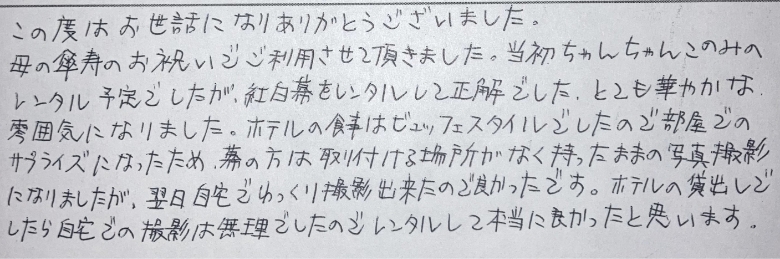 この度はお世話になりありがとうございました。
母の傘寿のお祝いでご利用させて頂きました。当初ちゃんちゃんこのみの
レンタル予定でしたが、紅白幕をレンタルして正解でした、とても華やかな
雰囲気になりました。ホテルの食事はビュッフェスタイルでしたので部屋での
サプライズになったため、幕の方は取り付ける場所がなく持ったままの写真撮影
になりましたが、翌日自宅でゆっくり撮影出来たので良かったです。ホテルの貸出しで
したら自宅での撮影は無理でしたのでレンタルして本当に良かったと思います。